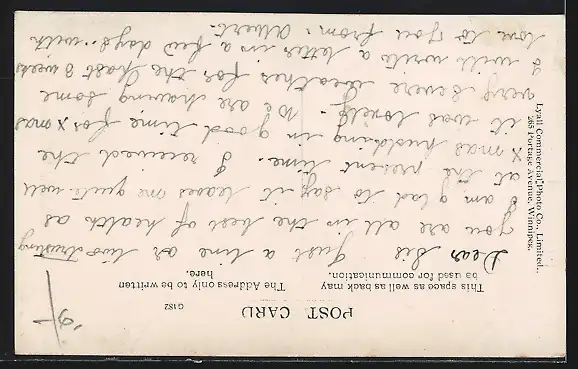 POST CARD
G182
This space as well as back may
be used for communication.
The Address only to be written
here.
Dear Sis Just a line or two trusting
you are all in the best of health as
I am glad to say it leaves me quite well
at the present time. I received the
Xmas pudding in good time for Xmas
it was lovely. We are having some
very severe weather for the past 3 weeks
I will write a letter in a few days. with
love to you from. Albert.
Lyall Commercial Photo Co., Limited.
265 Portage Avenue, Winnipeg.